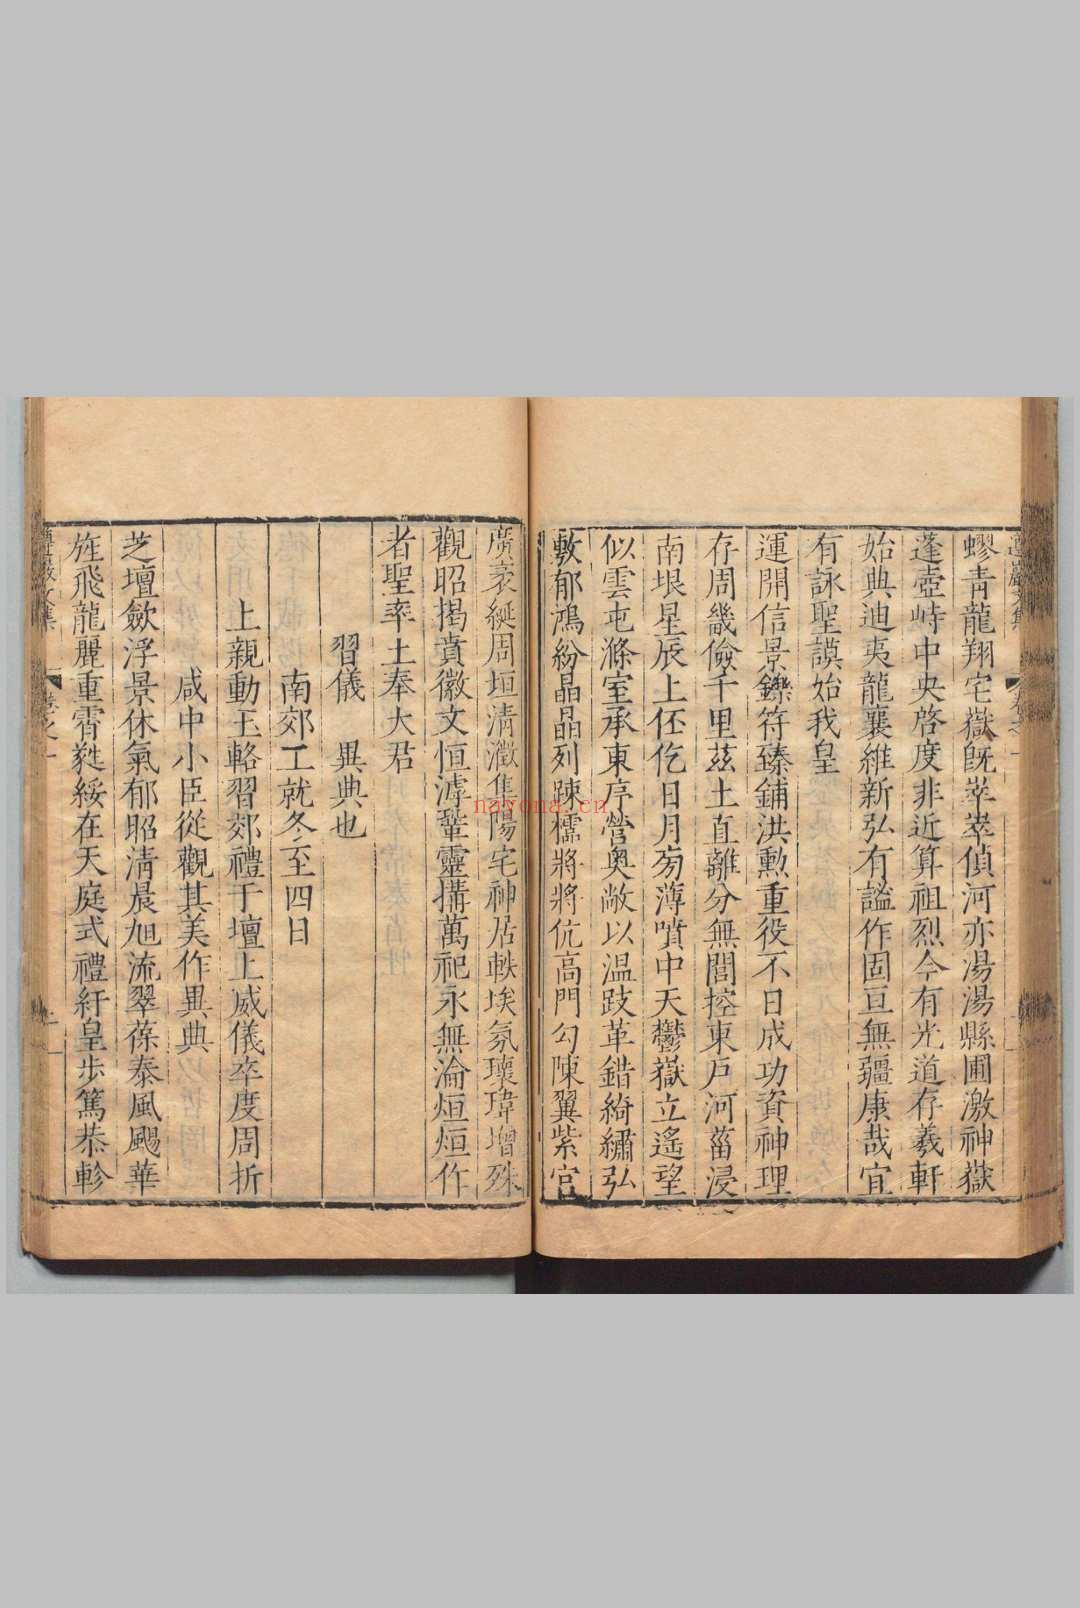 蟉青龍翔宅嶽旣崒崒偵河亦湯湯縣圃激神嶽
蓬壺峙中央啓度非近算祖烈今有光道存羲軒
始典迪夷龍襄維新弘有謐作固亘無疆康哉宜
有詠聖謨始我皇
運開信景鑠符臻鋪洪勲重役不日成功資神理
存周畿儉千里茲土直離分無閭控東戶河菑浸
南垠星辰上伾仡日月旁薄噴中天鬱嶽立遙望
似雲屯滌室承東序營奧敞以温跂革錯綺繡弘
敷郁鴻紛晶晶列踈櫺將將伉高門勾陳翼紫宮
廣袤綖周垣清瀓集陽宅神居軼埃氛瓌瑋增殊
觀昭揭賁徽文恒滹鞏靈搆萬祀永無淪烜烜作
者聖率土奉大君
習儀 異典也
南郊工就冬至四日
上親動玉輅習郊禮于壇上威儀卒度周折
咸中小臣從觀其美作異典
芝壇歛浮景休氣郁昭清晨旭流翠葆泰風颺華
旌飛龍麗重霄蕤綏在天庭式禮紆皇步篤恭軫
遵巖文集
卷之一
nayona.cn